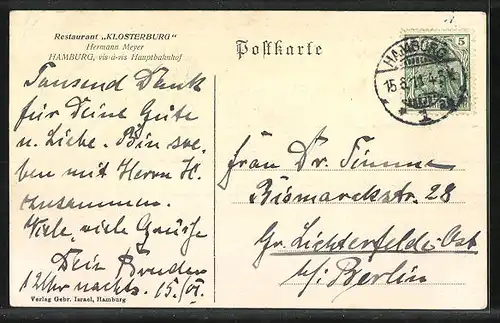 Restaurant „KLOSTERBURG"
Hermann Meyer
HAMBURG, vis-à-vis Hauptbahnhof
Postkarte
5
HAMBURG
15.6.
1
Tausend Dank
für Deine Güte
u. Liebe. Bin soe-
ben mit Herrn H.
zusammen.
Viele, viele Grüße
Dein Bruder
12 Uhr nachts. 15./VI.
Frau Dr. Timme
Bismarckstr. 28
Gr. Lichterfelde-Ost
b/: Berlin
Verlag Gebr. Israel, Hamburg